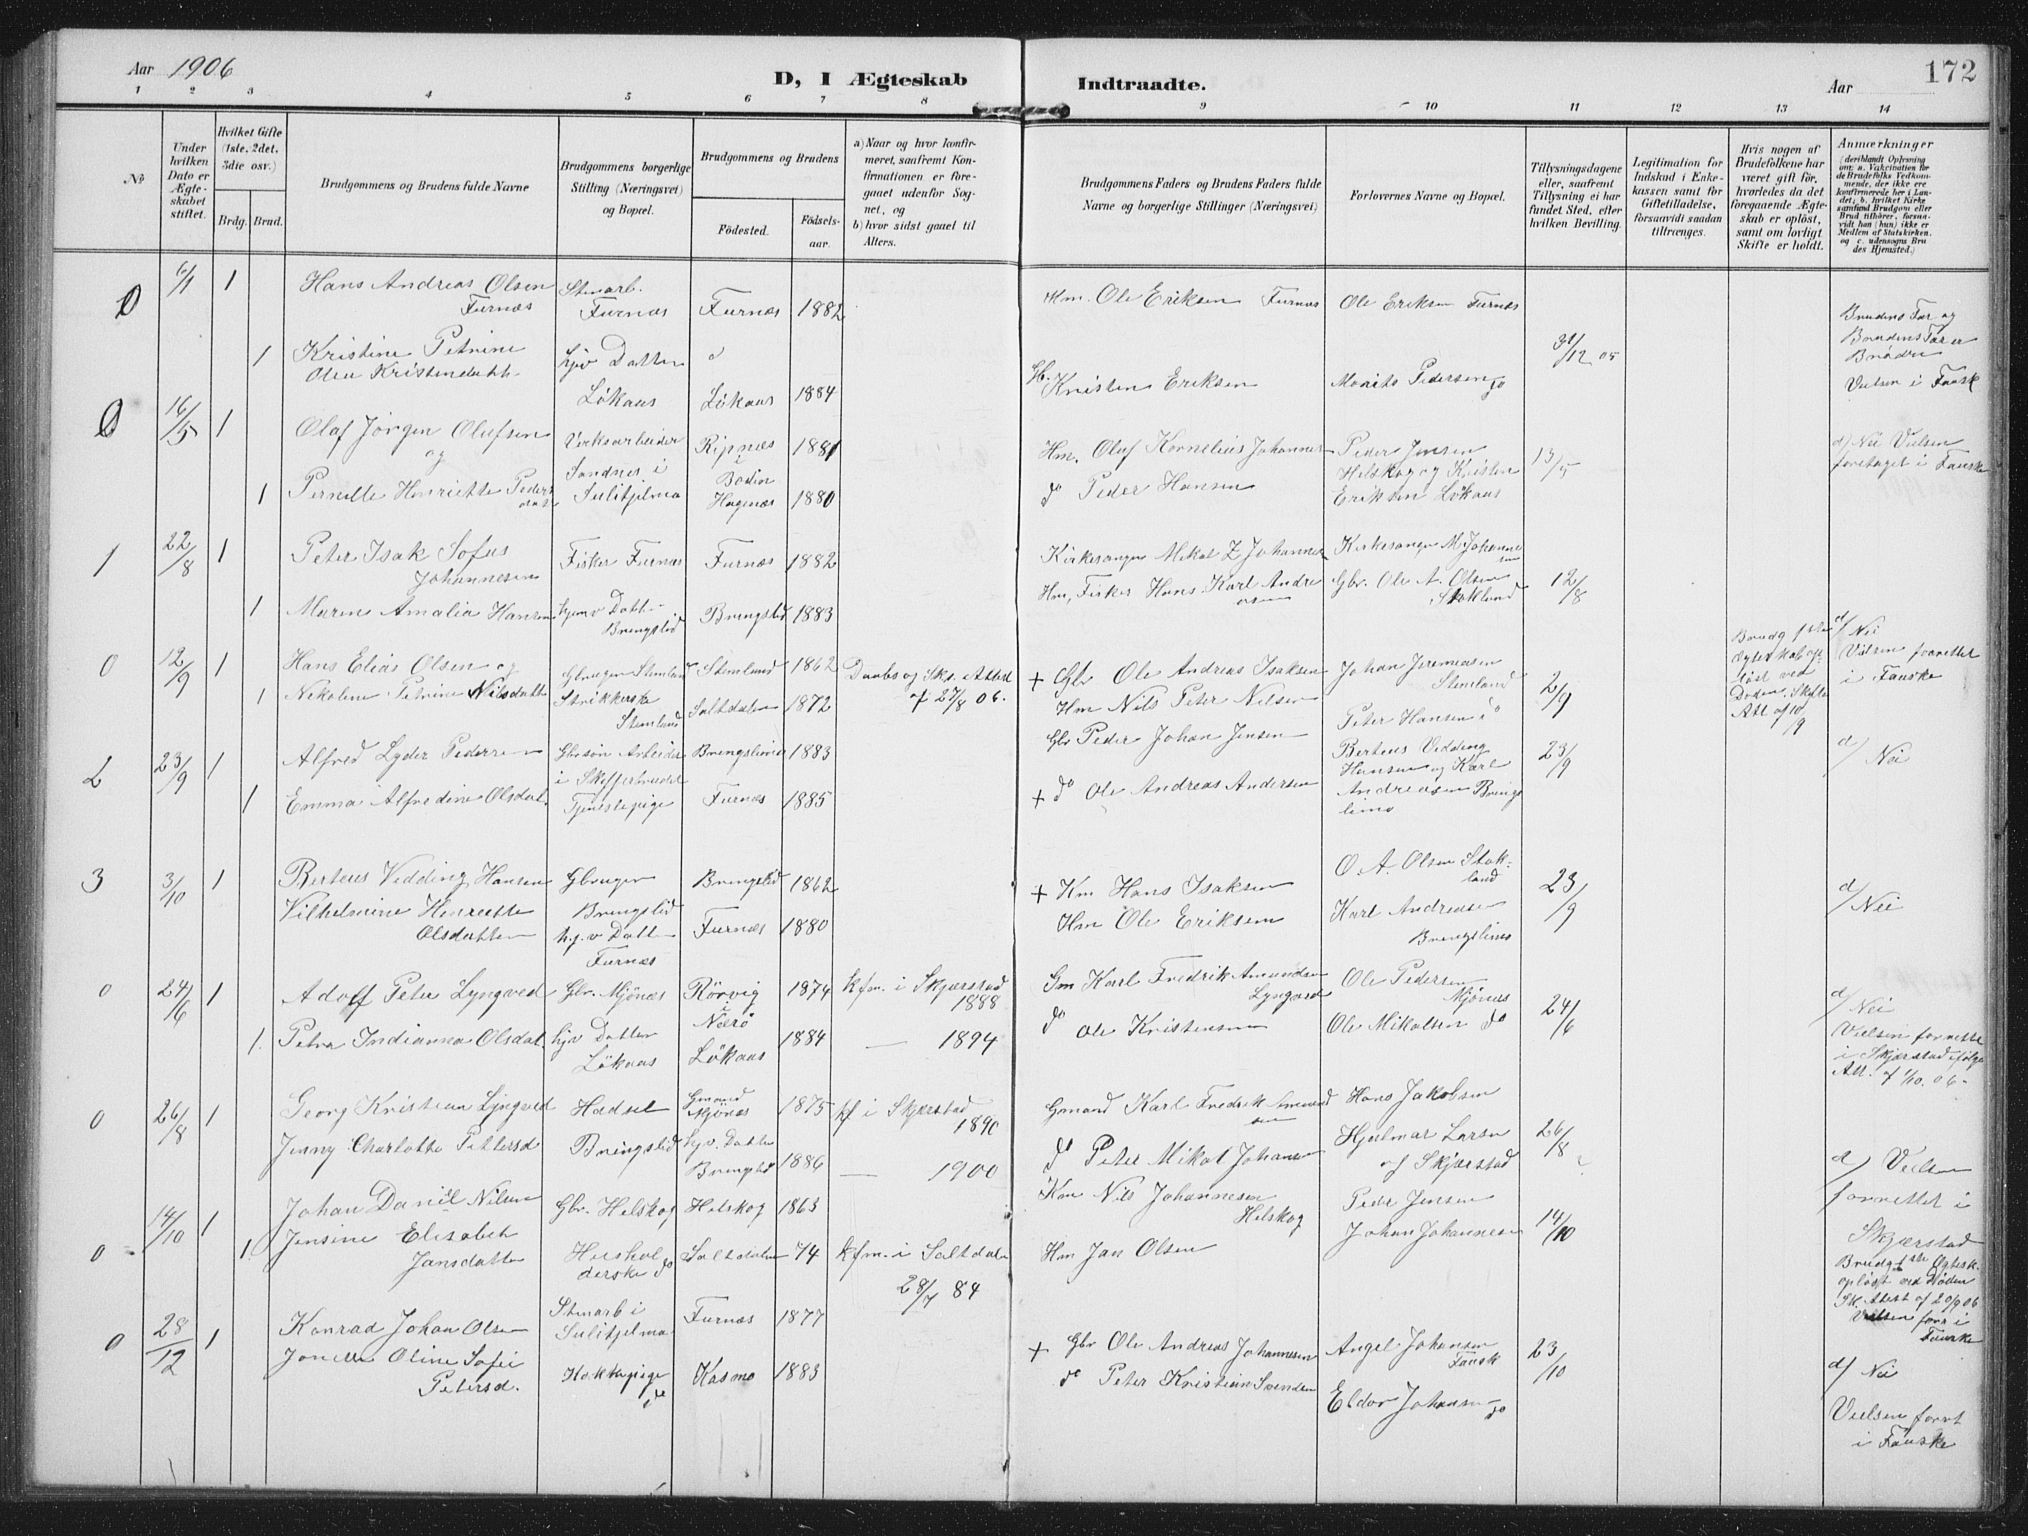 Aar 1906
D, I Ægteskab Indtraadte.
172
Aar
1 2 3 4 5 6 7 8 9 10 11 12 13 14
No
Under hvilken Dato er Ægteskabet stiftet.
Hvilket Gifte (1ste, 2det, 3die osv.)
Brdg. Brud.
Brudgommens og Brudens fulde Navne
Brudgommens borgerlige Stilling (Næringsvei) og Bopæl.
Brudgommens og Brudens
Fødested.
Fødselsaar.
a) Naar og hvor konfirmeret, saafremt Konfirmationen er foregaaet udenfor Sognet, og
b) hvor sidst gaaet til Alters.
Brudgommens Faders og Brudens Faders fulde Navne og borgerlige Stillinger (Næringsvei)
Forlovernes Navne og Bopæl.
Tillysningsdagene eller, saafremt Tillysning ei har fundet Sted, efter hvilken Bevilling.
Legitimation for Indskud i Enkekassen samt for Giftetilladelse, forsaavidt saadan tiltrænges.
Hvis nogen af Brudefolkene har været gift før, hvorledes da det foregaaende Ægteskab er opløst, samt om lovligt Skifte er holdt.
Anmærkninger
(deriblandt Oplysning om: a. Vakcination for de Brudefolks Vedkommende, der ikke ere konfirmerede her i Landet; b. hvilket Kirkesamfund Brudgom eller Brud tilhører, forsaavidt han (hun) ikke er Medlem af Statskirken, og c. udensogns Brudes Hjemsted.)
0 6/1 1 Hans Andreas Olsen Furnæs
Stenarb. Furnæs Furnæs 1882
Ole Eriksen Furnæs
Ole Eriksen Furnæs
1 Kristine Petrine Olea Kristendatt
hjv Datter Løkaas Løkaas 1884
Kristen Eriksen
Morits Pedersen do
31/12 05
Brudens Far og
Vielsen i Fauske
0 16/5 1 Olaf Jørgen Olufsen
og
Verksarbeider Sandnes i Sulitjelma
Ripnes i Bodin 1881
Hm. Oluf Kornelius Johannes
Peder Jensen Helskog og Kristen Eriksen Løkaas
13/5
1 Pernille Henriette Pedersdat
Hagenæs 1880
do Peder Hansen
d) Nei Vielsen foretaget i Fauske
1 22/8 1 Peter Isak Sofus Johannesen
Fisker Furnæs Furnæs 1882
Kirkesanger Mikal Z Johannes
Kirkesanger M Johannessen
1 Maren Amalia Hansen
hjemv Datt. Brengslid Brengslid 1883
Hm, Fisker Hans Karl Andreasen
Gbr. Ole A. Olsen Stokland
12/8
0 12/9 1 Hans Elias Olsen og
Gbruger Stemland Stemland 1862
Daabs og Sko. Attest af 27/8 06.
+ Gbr Ole Andreas Isaksen
Johan Jeremiasen Stemland
2/9
1 Nikoline Petrine Nilsdatte
Strikkerske Stemland Saltdalen 1872
Hm Nils Peter Nilsen
Peter Hansen i do
Brudg første Ægteskab opløst ved Døden. Skifte Att af 10/9
d) Nei Vielsen forrettet i Fauske
2 23/9 1 Alfred Lyder Pedersen
Gbrsøn Arbeider i Skofferbruddet Brengslimo 1883
Gbr Peder Johan Jensen
Berteus Vedding Hansen og Karl Andreasen Brengslimo
23/9
1 Emma Alfredine Olsdat.
Tjenestepige Furnæs 1885
+ do Ole Andreas Andersen
d) Nei
3 3/10 1 Berteus Vedding Hansen
Gbruger Brengslid Brengslid 1862
+ Km Hans Isaksen
O. A. Olsen Stokland
23/9
Vilhelmine Henriette Olsdatter
hj.v Datter Furnæs Furnæs 1880
Hm Ole Eriksen
Karl Andreasen Brengslimo
d) Nei
0 24/6 1 Adolf Peter Lyngved
Gbr. Mjønæs Rörvig i Nærö 1874
kfm. i Skjerstad 1888
Gm Karl Fredrik Amundsen Lyngved
Ole Pedersen Mjönes
24/6
1. Petra Indianna Olsdat.
hjv Datter Løkaas Løkaas 1884
— 1894
do Ole Kristensen
Ole Mikalsen do
d) Nei Vielsen forrettet i Skjærstad ifølge Att. af 1/10.06.
0 26/8 1 Georg Kristian Lyngved
Hadsel Gmand Mjönes 1875
kf i Skjerstad 1890
Gmand Karl Fredrik Amundsen
Hans Jakobsen
Jenny Charlotte Pettersd
Brengslid hjv. Datter Brengslid 1886
— 1900
do Peter Mikal Johansen
Hjalmar Larsen af Skjærstad
26/8
d) Vielsen forrettet i Skjærstad
0 14/10 1 Johan Daniel Nilsen
Gbr. Helskog Helskog 1863
Km Nils Johannesen Helskog
Peder Jensen
1. Jensine Elisabet Jansdatter
Husholderske do Saltdalen 74
kfm. i Saltdalen 28/7 84
Hm Jan Olsen
Johan Johannesen
14/10
Brudg 1ste Ægtesk. opløst ved Døden Sk. Attest af 20/9 06 Vielsen forr i Fauske
0 28/12 1 Konrad Johan Olsen
Stenarb i Sulitjelma Furnæs 1877
+ Gbr Ole Andreas Johannesen
Angel Johansen Fausk
23/10
Jonette Oline Sofie Petersd.
Kokkepige do Kosmo 1883
do Peter Kristian Svendsen
Eldor Johansen do
d) Nei
Vielsen forrt i Fauske